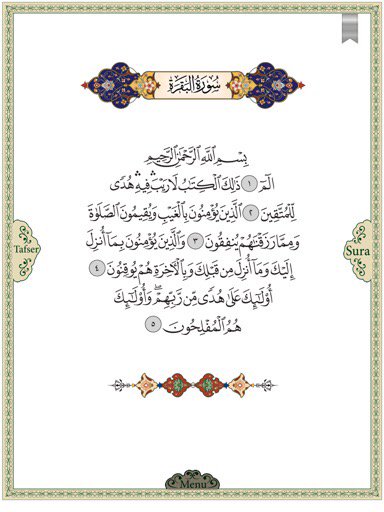 سُورَةُ البَقَرَةِ
بِسْمِ اللَّهِ الرَّحْمَٰنِ الرَّحِيمِ
الٓمٓ ١ ذَٰلِكَ الْكِتَٰبُ لَا رَيْبَ ۛ فِيهِ ۛ هُدًى
لِّلْمُتَّقِينَ ٢ الَّذِينَ يُؤْمِنُونَ بِالْغَيْبِ وَيُقِيمُونَ الصَّلَوٰةَ
وَمِمَّا رَزَقْنَٰهُمْ يُنفِقُونَ ٣ وَالَّذِينَ يُؤْمِنُونَ بِمَا أُنزِلَ
إِلَيْكَ وَمَا أُنزِلَ مِن قَبْلِكَ وَبِالْآخِرَةِ هُمْ يُوقِنُونَ ٤
أُولَٰئِكَ عَلَىٰ هُدًى مِّن رَّبِّهِمْ ۖ وَأُولَٰئِكَ
هُمُ الْمُفْلِحُونَ ٥
Tafser
Sura
Menu